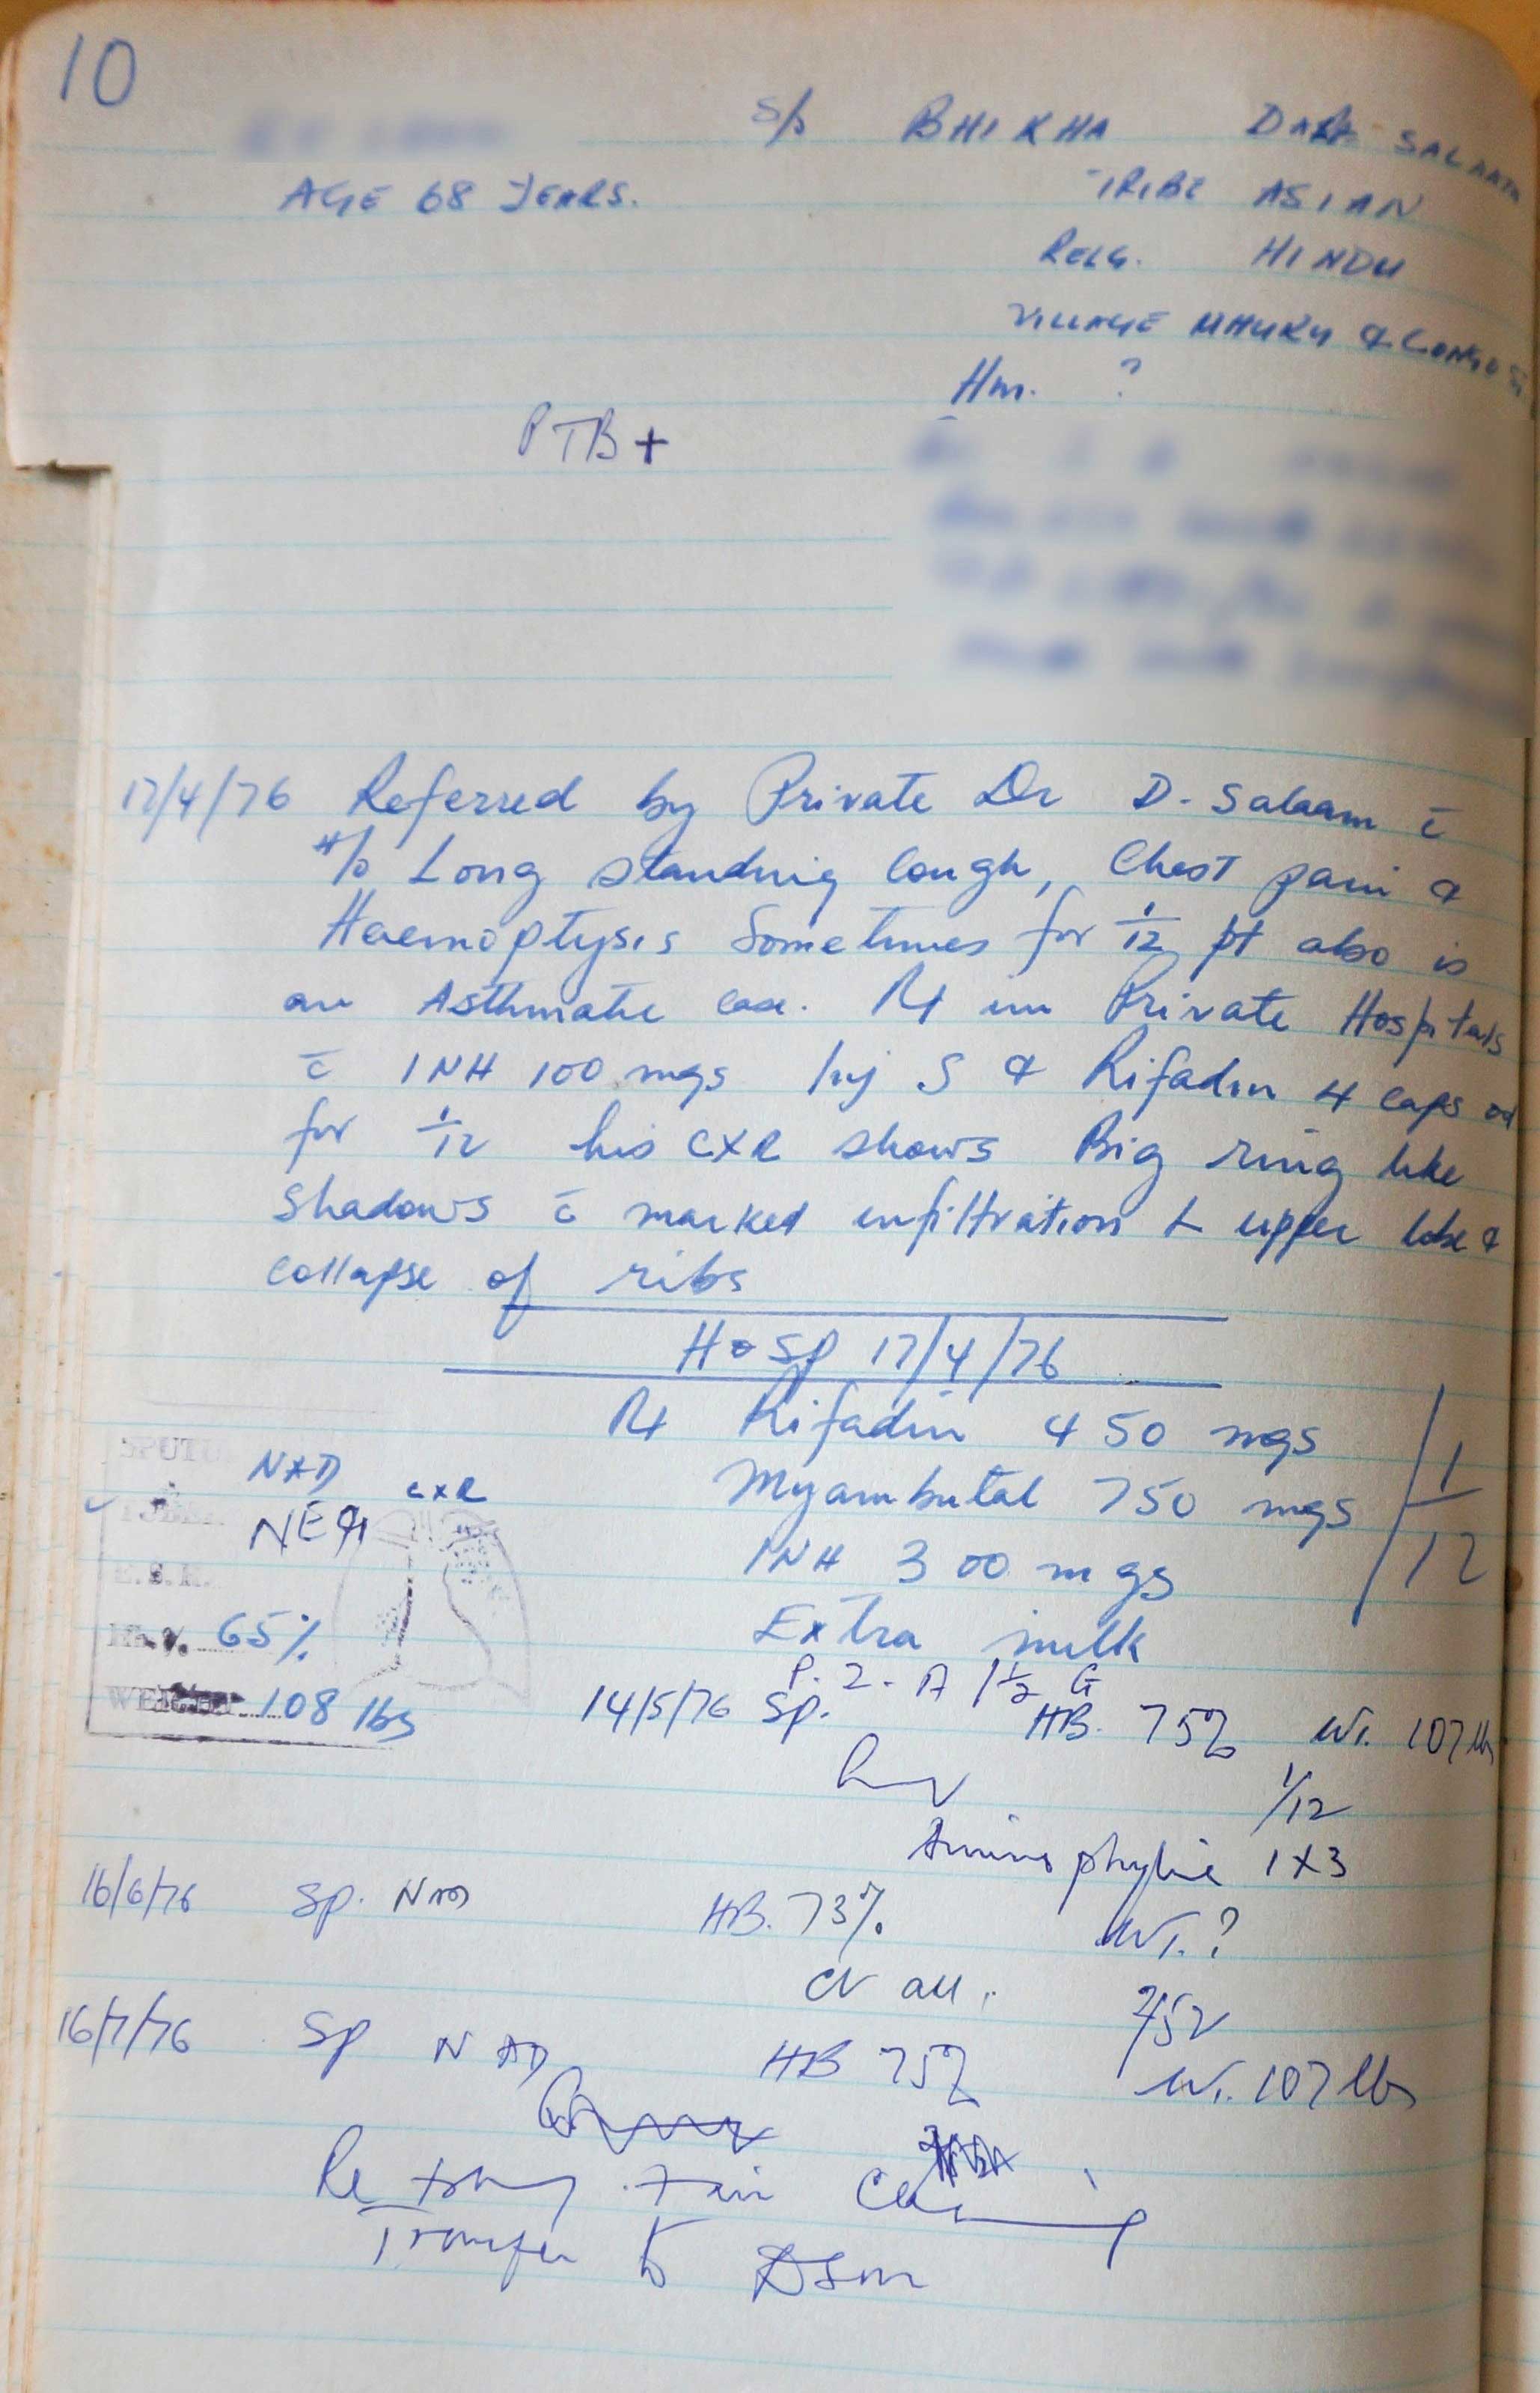 10
S/o BHIKHA DAR SALAAM
AGE 68 YEARS.
TRIBE ASIAN
RELG. HINDU
VILLAGE UHURU & CONGO ST
Hm. ?
PTB+
17/4/76 Referred by Private Dr D. Salaam c̄
H/o Long standing Cough, Chest pain &
Haemoptysis Sometimes for 1/12 pt also is
an Asthmatic case. Rx in Private Hospitals
c̄ INH 100 mgs Inj S & Rifadin 4 caps od
for 1/12 his CXR shows Big ring like
Shadows c̄ marked infiltration L upper lobe &
collapse of ribs
Hosp 17/4/76
Rx Rifadin 450 mgs
Myambutal 750 mgs
INH 300 mgs
1/12
Extra milk
P.Z.A 1½ G
SPUTUM NAD
CXR
NEG
E.S.R.
Hb.% 65%
WEIGHT 108 lbs
14/5/76 Sp. HB. 75% Wt. 107 lbs
1/12
Aminophylline 1x3
16/6/76 Sp. NAD HB. 73% Wt. ?
all. 2/52
16/7/76 Sp NAD HB 75% Wt. 107 lbs
Transfer to DSM